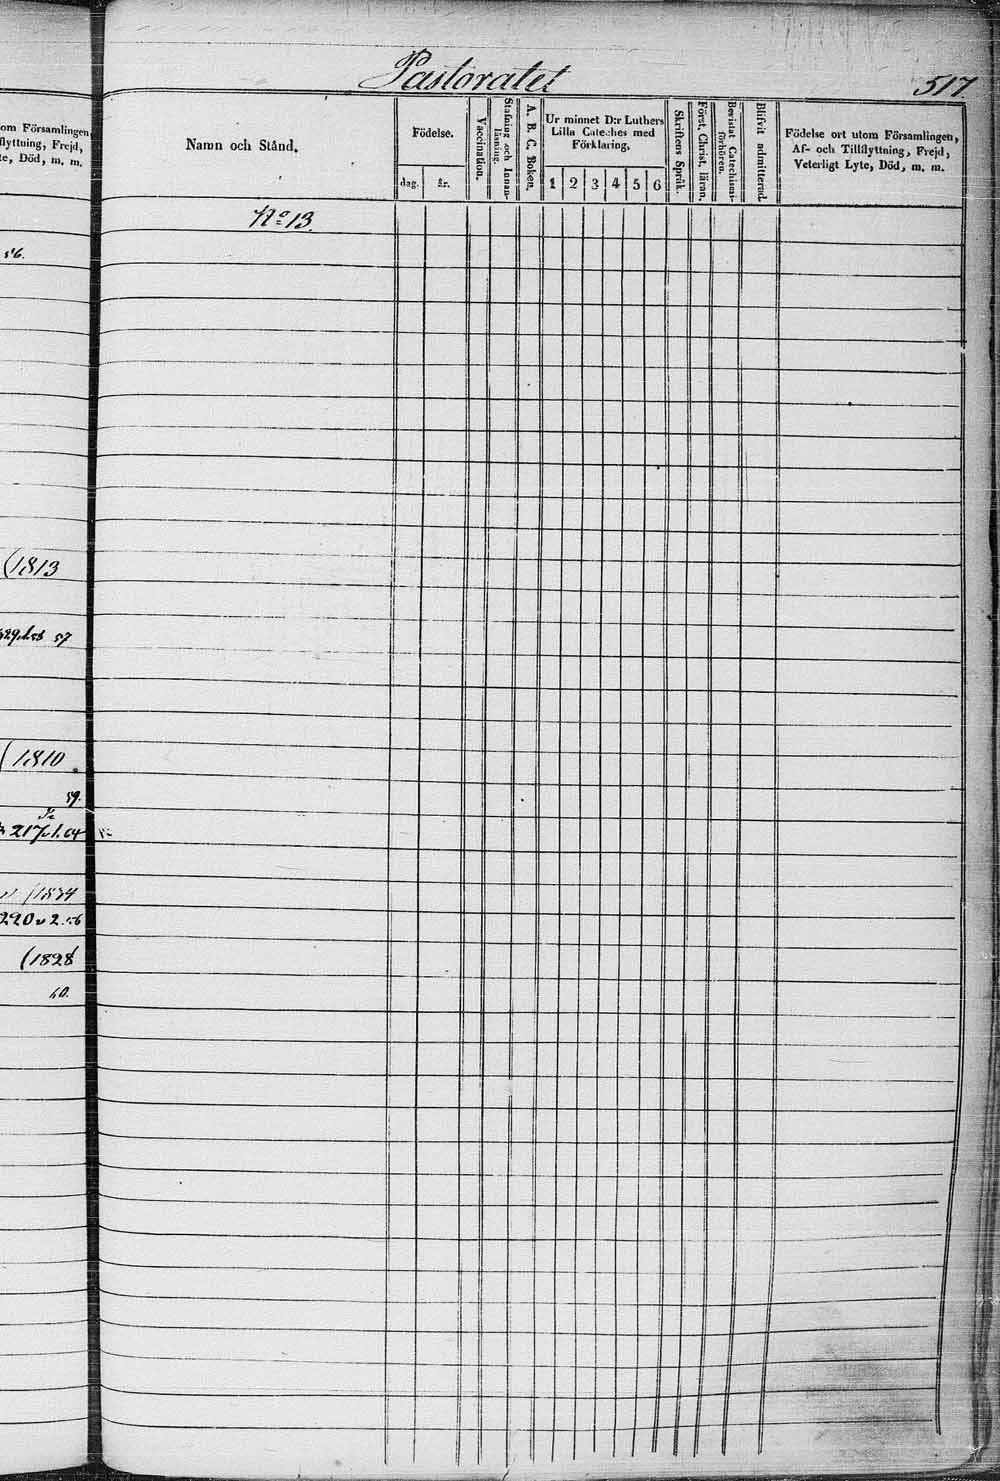 Pastoratet
517
om Församlingen,
flyttning, Frejd,
te, Död, m. m.
Namn och Stånd.
Födelse.
dag.
år.
Vaccination.
Stafning och Innan-
läsning.
A. B. C. Boken.
Ur minnet D:r Luthers
Lilla Cateches med
Förklaring.
1 2 3 4 5 6
Skriftens Språk.
Först. Christ. läran.
Bevistat Catechismi-
förhören.
Blifvit admitterad.
Födelse ort utom Församlingen,
Af- och Tillflyttning, Frejd,
Veterligt Lyte, Död, m. m.
No 13.
56.
(1813
57
(1810
59.
217 v. 1. 64
(1834
220 v 2. 56
(1828
60.